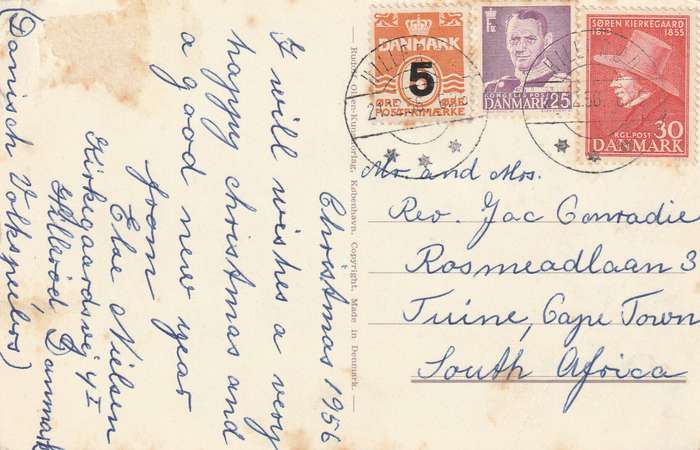 Christmas 1956
I will wishes a very
happy christmas and
a good new year
from
Else Nielsen
Kirkegaardsvej 4 I
Hillerød Danmark
(Danisch Volkspeilers)
— Rudolf Olsen-Kunstforlag, København. Copyright. Made in Denmark. —
DANMARK
5
ØRE ØRE
POSTFRIMÆRKE
KONGELIG POST
DANMARK 25
SØREN KIERKEGAARD
1813 1855
KGL. POST 30
DANMARK
Mr. and Mrs.
Rev. Jac Conradie
Rosmeadlaan 3
Tuine, Cape Town
South Africa